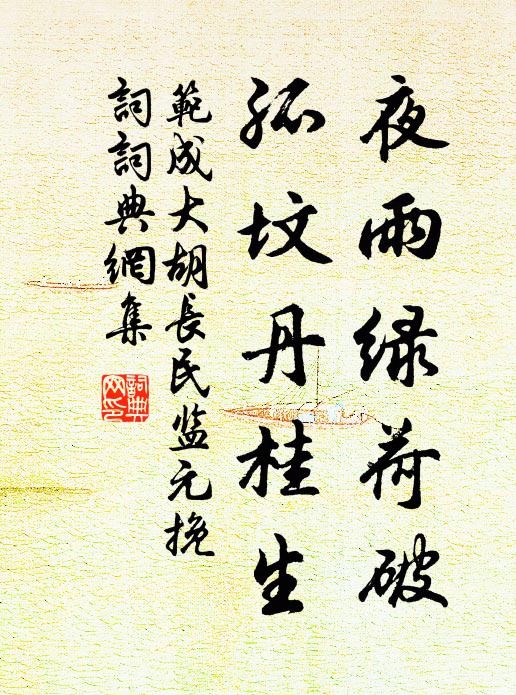 夜雨绿荷破
孤坟丹桂生
範成大胡長民监元挽
詞詞典網集
詞典
网印